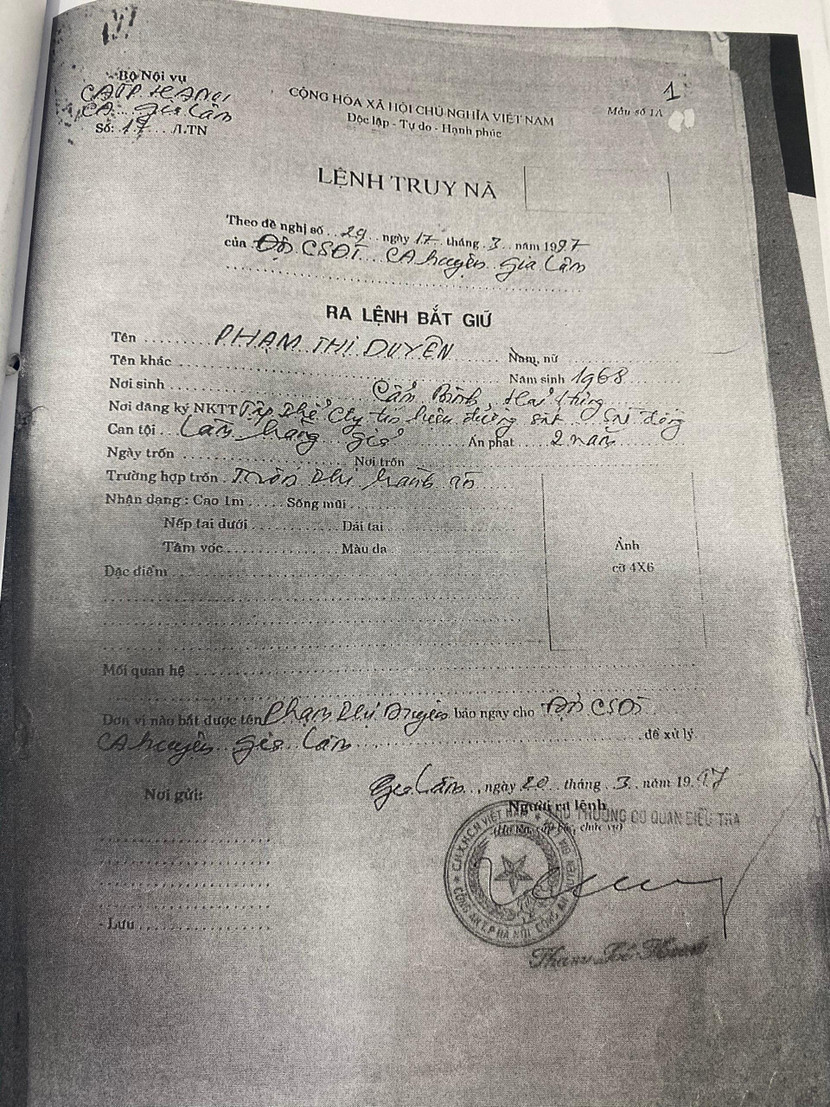 Bộ Nội vụ
CATP. HANOI
CA Gia Lâm
Số: 17 /LTN
CỘNG HÒA XÃ HỘI CHỦ NGHĨA VIỆT NAM
Độc lập - Tự do - Hạnh phúc
1
Mẫu số 1A
LỆNH TRUY NÃ
Theo đề nghị số 29 ngày 17 tháng 3 năm 1997
của Đội CSĐT CA huyện Gia Lâm
RA LỆNH BẮT GIỮ
Tên PHẠM THỊ DUYÊN Nam, nữ
Tên khác Năm sinh 1968
Nơi sinh Cẩm Bình, Hải Hưng
Nơi đăng ký NKTT Tập thể Cty tín hiệu đường sắt
Can tội Làm hàng giả Án phạt 2 năm
Ngày trốn Nơi trốn
Trường hợp trốn Trốn thi hành án
Nhận dạng : Cao 1m Sống mũi
Nếp tai dưới Dái tai
Tầm vóc Màu da
Ảnh
cỡ 4X6
Đặc điểm
Mối quan hệ
Đơn vị nào bắt được tên Phạm Thị Duyên báo ngay cho Đội CSĐT
CA huyện Gia Lâm để xử lý
Gia Lâm, ngày 20 tháng 3 năm 1997
Nơi gửi:
Người ra lệnh
THỦ TRƯỞNG CƠ QUAN ĐIỀU TRA
C.H.X.H.C.N VIỆT NAM
CÔNG AN T.P HÀ NỘI CÔNG AN HUYỆN
- Lưu